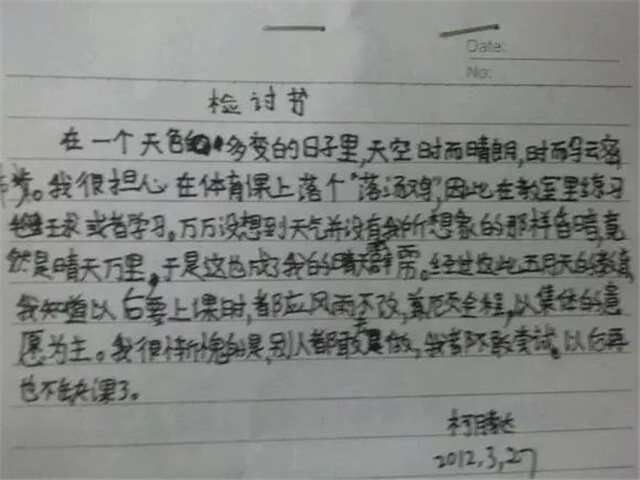 Date:
No:
检讨书
在一个天色多变的日子里,天空时而晴朗,时而乌云密
布。我很担心在体育课上落个"落汤鸡",因此在教室里练习
球或者学习。万万没想到天气并没有我所想象的那样昏暗,竟
然是晴天万里,于是这也成了我的晴天霹雳。经过这次五月天的教育,
我知道以后要上课时,都应风雨不改,奉陪全程,以集体的意
愿为主。我很惭愧的是,别人都敢去做,我都不敢尝试。以后再
也不缺课了。
柯
2012.3.27